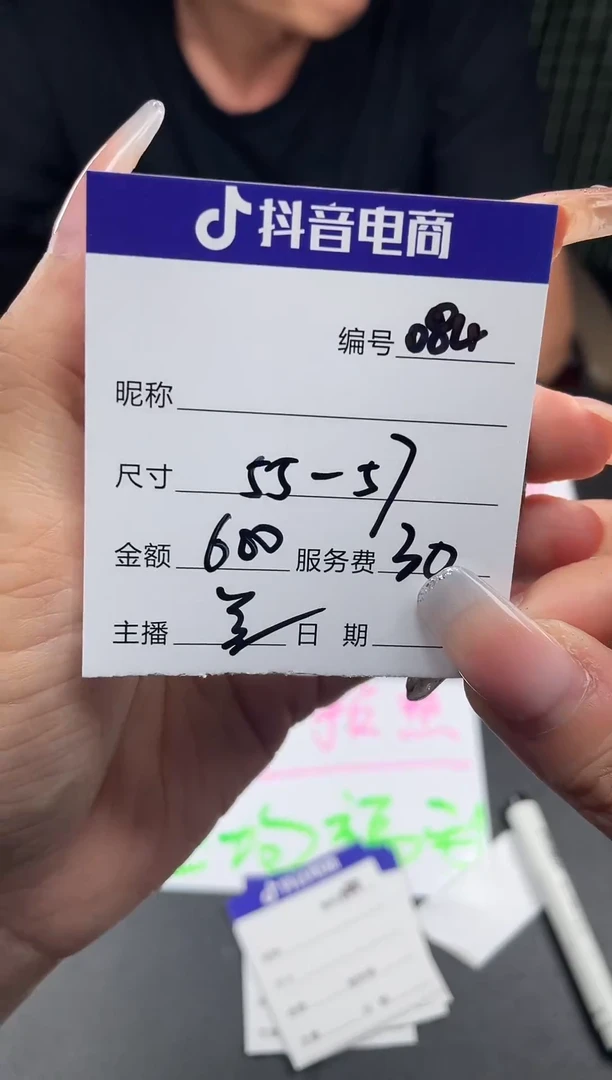 抖音电商
编号 084
昵称
尺寸 55-57
金额 600 服务费 30
主播 日 期
抖音电商